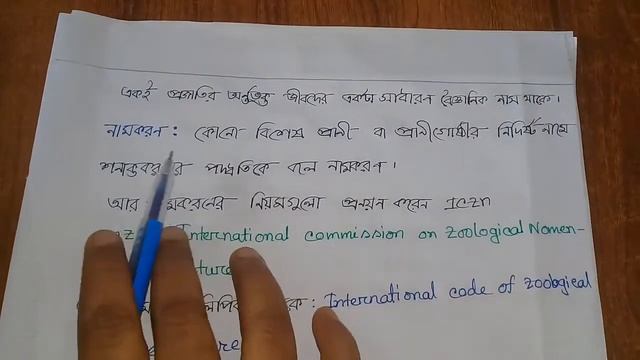 একই প্রজাতির অন্তর্ভুক্ত জীবদের একটা সাধারন বৈজ্ঞানিক নাম থাকে।
নামকরন: কোনো বিশেষ প্রানী বা প্রানীগোষ্ঠীর নির্দিষ্ট নামে
পদ্ধতিকে বলে নামকরন।
আর নিয়মগুলো প্রনয়ন করেন ICZN
International commission on Zoological Nomen-
: International code of Zoological